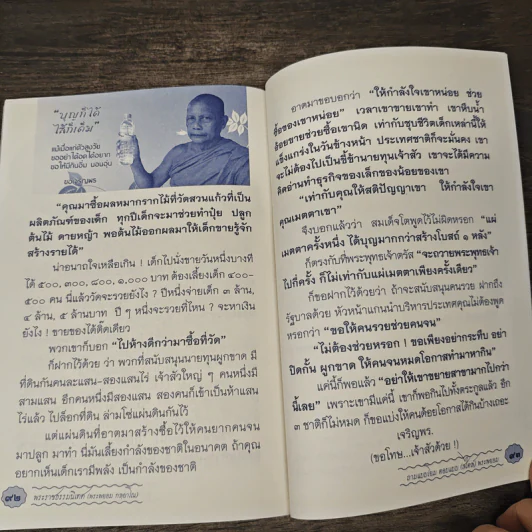 "บุญก็ได้
ไส้ก็เต็ม"
แม้เมื่อแก่ตัวลงวัย
ขออย่าได้อดได้อยาก
ขอให้มีกินอิ่ม นอนอุ่น
ขอเจริญพร
"คุณมาซื้อผลหมากรากไม้ที่วัดสวนแก้วที่เป็น
ผลิตภัณฑ์ของเด็ก ทุกปีเด็กจะมาช่วยทำปุ๋ย ปลูก
ต้นไม้ ดายหญ้า พอต้นไม้ออกผลมาให้เด็กขายรู้จัก
สร้างรายได้"
น่าอนาถใจเหลือเกิน ! เด็กไปนั่งขายวันหนึ่งบางที
ได้ ๕๐๐, ๓๐๐, ๘๐๐, ๑,๐๐๐ บาท ต้องเลี้ยงเด็ก ๔๐๐-
๕๐๐ คน นี่แล้ววัดจะรวยยังไง ? ปีหนึ่งจ่ายเด็ก ๓ ล้าน,
๔ ล้าน, ๕ ล้านบาท ปี ๆ หนึ่งจะรวยที่ไหน ? จะหาเงิน
ยังไง ! ขายของได้ติดเดียว
พวกเขาก็บอก "ไปห้างดีกว่ามาซื้อที่วัด"
ก็ฝากไว้ด้วย ว่า พวกที่สนับสนุนนายทุนผูกขาด มี
ที่ดินกันคนละแสน-สองแสนไร่ เจ้าสัวใหญ่ ๆ คนหนึ่งมี
สามแสน อีกคนหนึ่งมีสองแสน สองคนก็เข้าเป็นห้าแสน
ไร่แล้ว ไปล็อกที่ดิน ล่ามโซ่แผ่นดินกันไว้
แต่แผ่นดินที่อาตมาสร้างซื้อไว้ให้คนยากคนจน
มาปลูก มาทำ นี่มันเลี้ยงกำลังของชาติในอนาคต ถ้าคุณ
อยากเห็นเด็กเรามีพลัง เป็นกำลังของชาติ
๙๒
พระราชธรรมนิเทศ (พระพยอม กลฺยาโณ)
อาตมาขอบอกว่า "ให้กำลังใจเขาหน่อย ช่วย
ซื้อของเขาหน่อย" เวลาเขาขายเขาทำ เขาหีบน้ำ
อ้อยขายช่วยซื้อเขานิด เท่ากับชุบชีวิตเด็กเหล่านี้ให้
แข็งแกร่งในวันข้างหน้า ประเทศชาติก็จะมั่นคง เขา
จะไม่ต้องไปเป็นขี้ข้านายทุนเจ้าสัว เขาจะได้มีความ
คิดอ่านทำธุรกิจของเล็กของน้อยของเขา
"เท่ากับคุณให้สติปัญญาเขา ให้กำลังใจเขา
คุณเมตตาเขา"
จึงบอกแล้วว่า สมเด็จโตพูดไว้ไม่ผิดหรอก "แผ่
เมตตาครั้งหนึ่ง ได้บุญมากกว่าสร้างโบสถ์ ๑ หลัง"
ก็ตรงกับที่พระพุทธเจ้าตรัส "จะถวายพระพุทธเจ้า
ไปกี่ครั้ง ก็ไม่เท่ากับแผ่เมตตาเพียงครั้งเดียว"
ก็ขอฝากไว้ด้วยว่า ถ้าจะสนับสนุนคนรวย ฝากถึง
รัฐบาลด้วย หัวหน้าแกนนำบริหารประเทศคุณไม่ต้องพูด
หรอกว่า "ขอให้คนรวยช่วยคนจน"
"ไม่ต้องช่วยหรอก ! ขอเพียงอย่ากระทืบ อย่า
ปิดกั้น ผูกขาด ให้คนจนหมดโอกาสทำมาหากิน"
แค่นี้ก็พอแล้ว "อย่าให้เขาขยายสาขามากไปกว่า
นี้เลย" เพราะเขามีแค่นี้ เขาก็พอกินไปทั้งตระกูลแล้ว อีก
๓ ชาติก็ไม่หมด ก็ขอแบ่งให้คนด้อยโอกาสได้กินบ้างเถอะ
เจริญพร.
(ขอโทษ...เจ้าสัวด้วย !)
๙๓